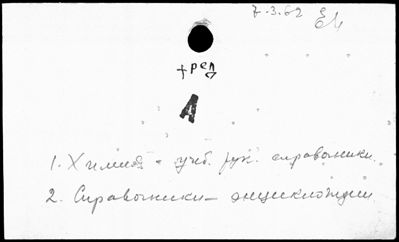 7.3.62
+ред
А
1. Химия - учеб. рук. справочники.
2. Справочники - энциклопедии